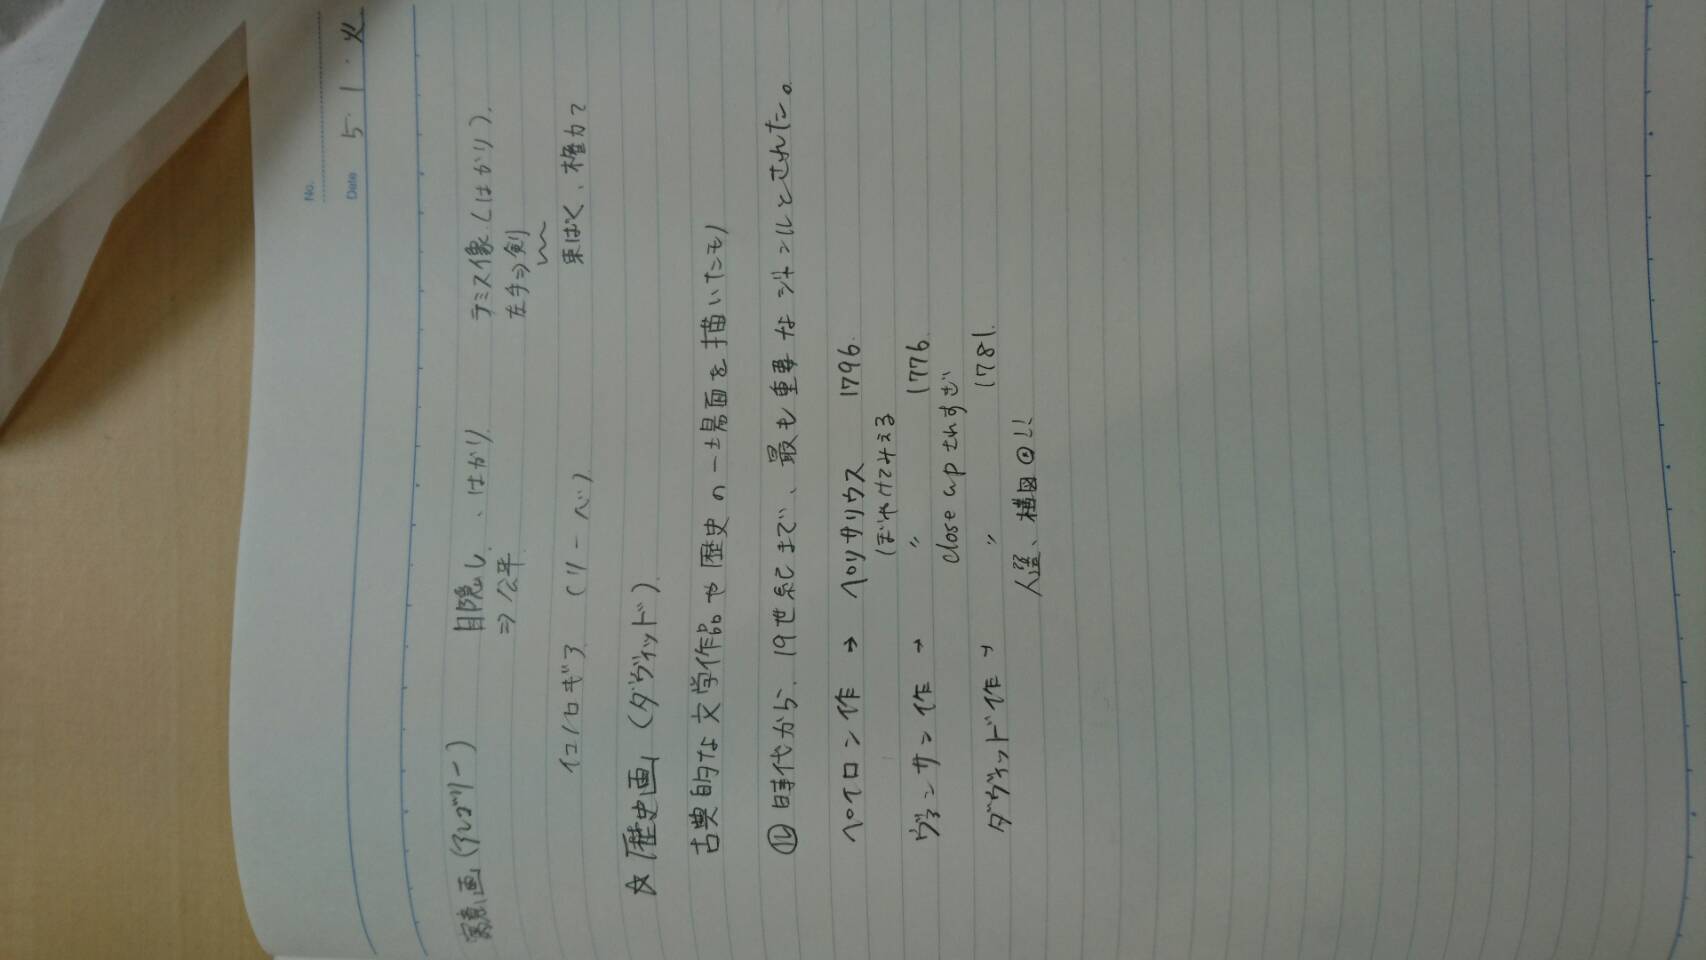 No.
Date 5・1・火
寓意画(アレゴリー) 目隠し、はかり テミス像(はかり).
⇒公平 左手⇒剣
イコノロギア (リーベ) 束ばく、権力で
☆歴史画 (ダヴィッド)
古典的な文学作品や歴史の一場面を描いたモノ
㋸時代から、19世紀まで、最も重要なジャンルとされた。
ペイロン作 → ベリサリウス 1796.
ぼやけてみえる
ヴァンサン作 → 〃 1776.
close up されすぎ
ダヴィッド作 → 〃 1781.
人選、構図◎!!